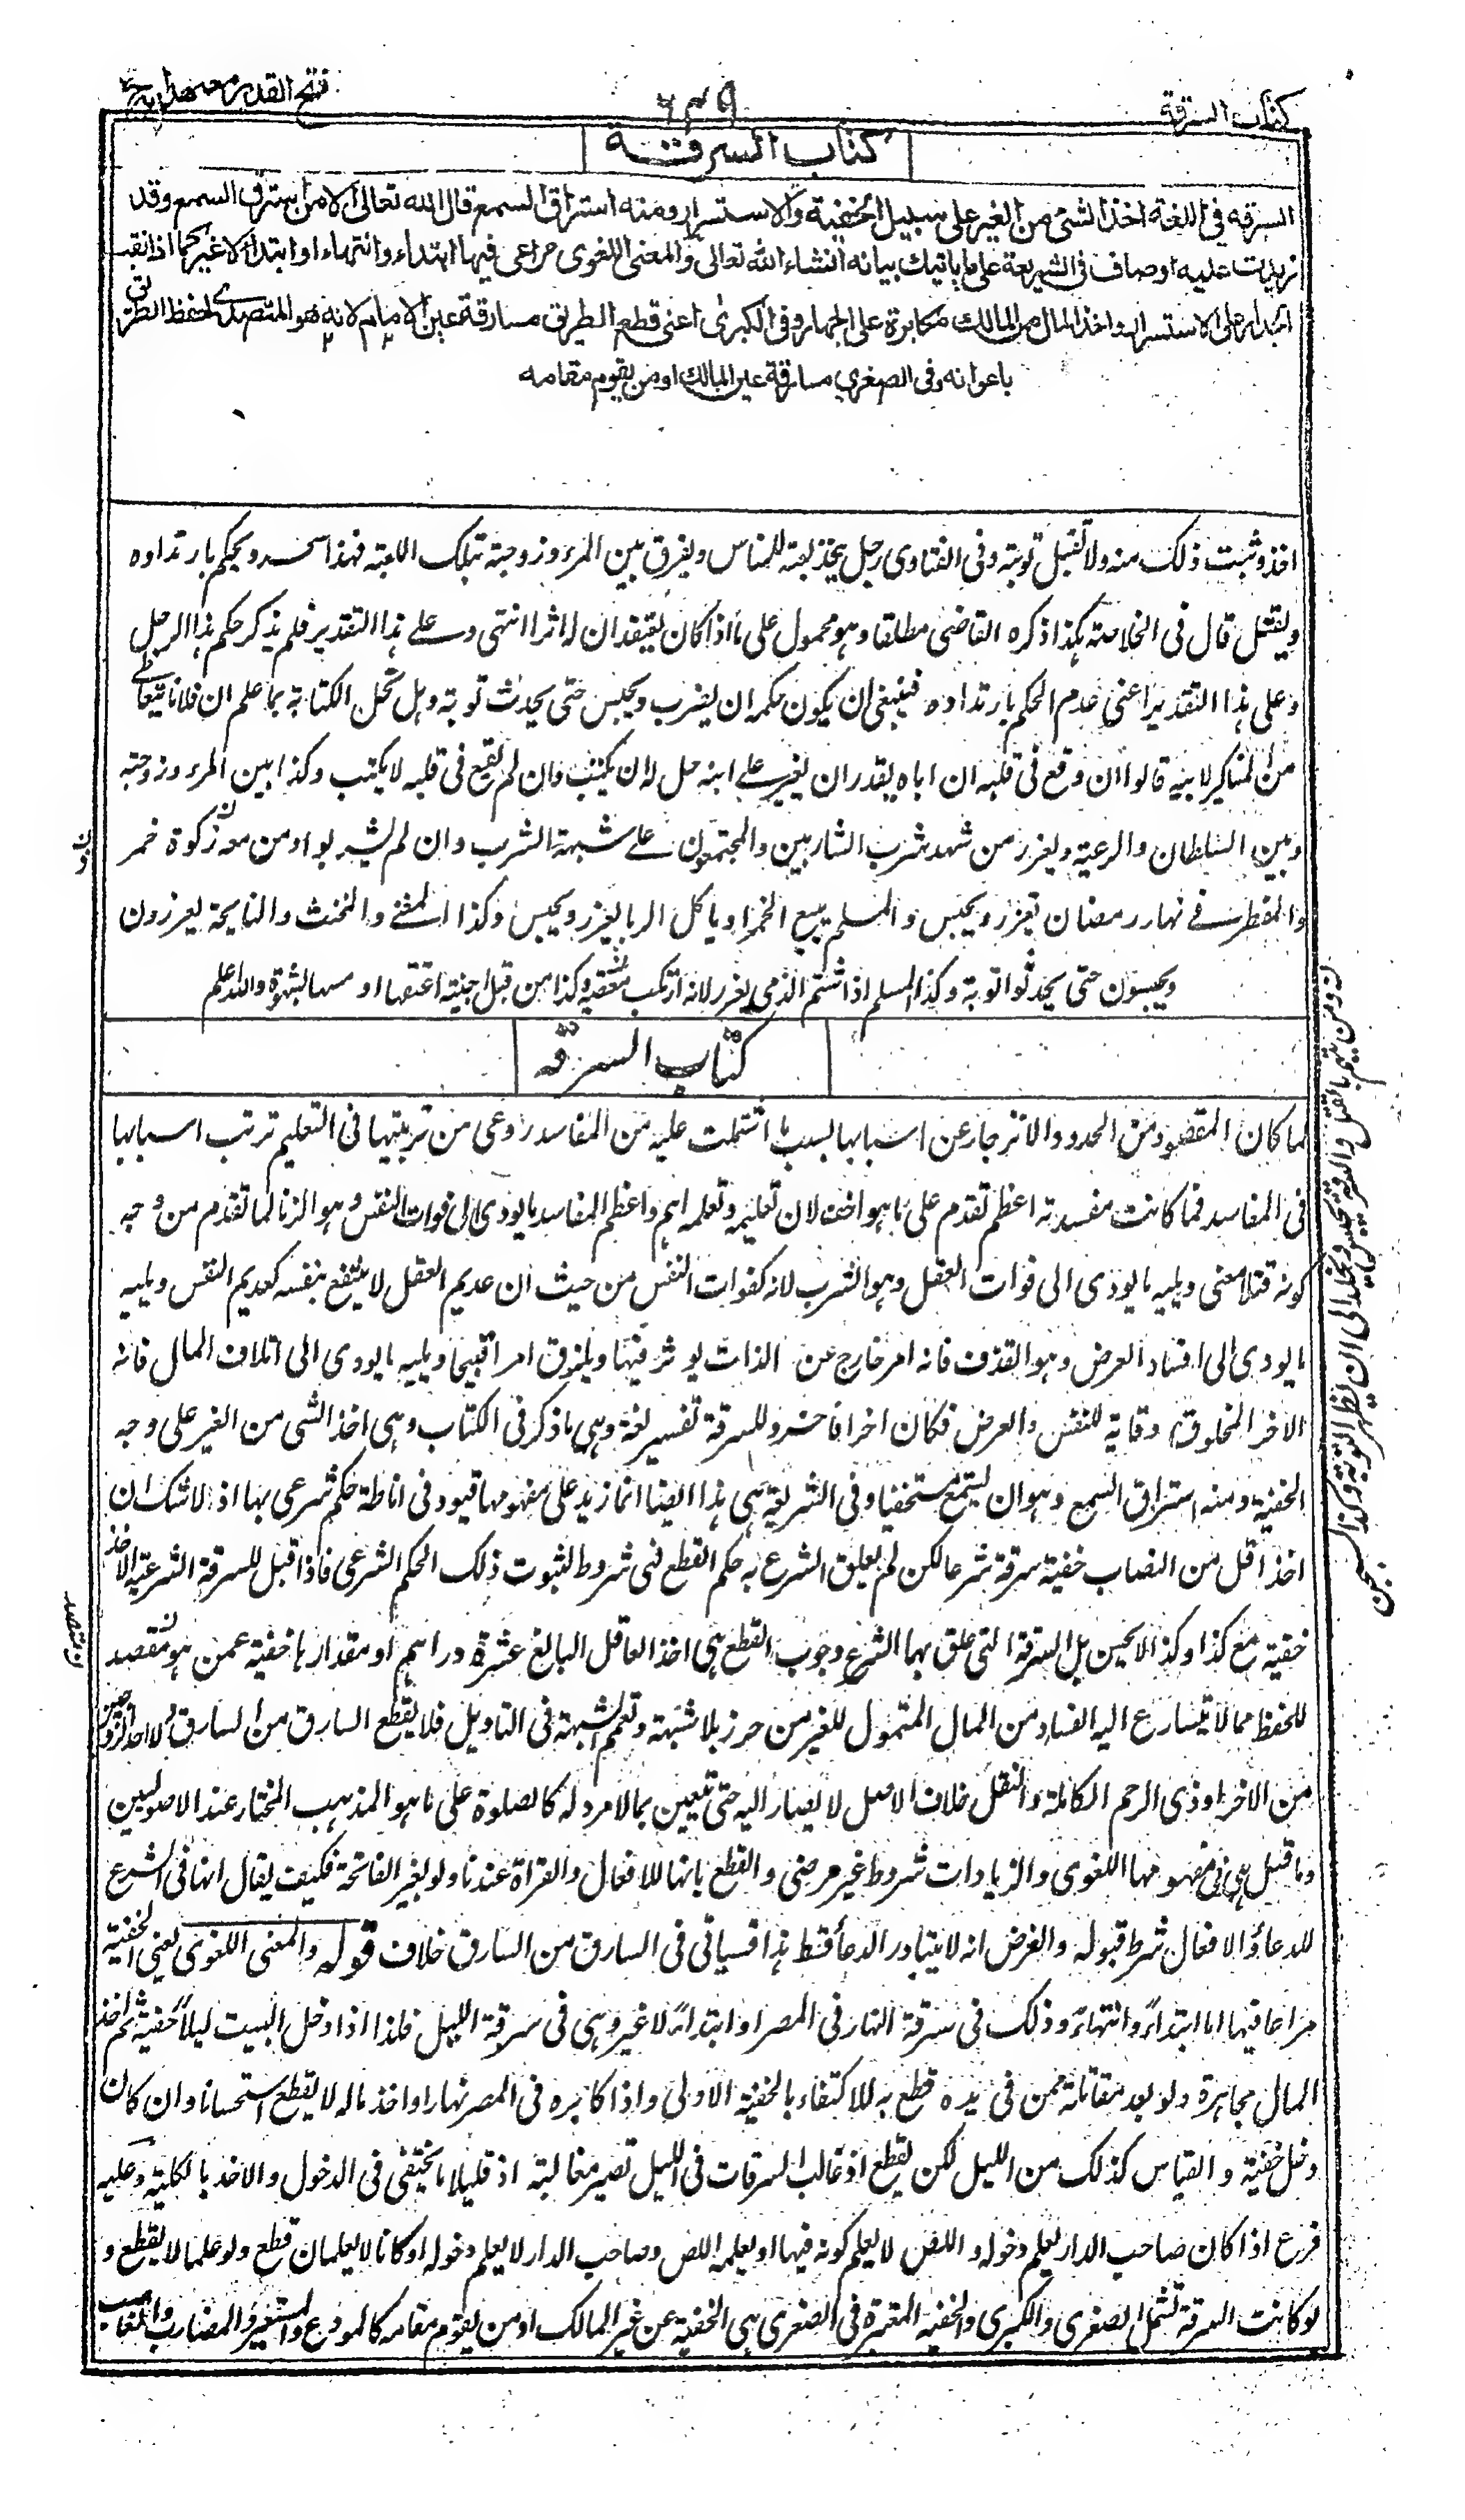 كتاب السرقة
٦٣٩
فتح القدير مع هداية
كتاب السرقة
السرقة في اللغة اخذ الشئ من الغير على سبيل الخفية والاستسرار ومنه استراق السمع قال الله تعالى الا من استرق السمع وقد
زيدت عليه اوصاف في الشريعة على ما ياتيك بيانه انشاء الله تعالى والمعنى اللغوي مراعى فيها ابتداء وانتهاء او ابتداء لا غير كما اذا نقب
الجدار على الاستسرار واخذ المال من المالك مكابرة على الجهار وفي الكبرى اعني قطع الطريق مسارقة عين الامام لانه هو المتصدي لحفظ الطريق
باعوانه وفي الصغرى مسارقة عين المالك او من يقوم مقامه
اخذ وثبت ذلك منه ولا تقبل توبته وفي الفتاوى رجل يتخذ لعبة للناس ويفرق بين المرء وزوجته بتلك اللعبة فهذا سحر ويحكم بارتداده
ويقتل قال في الخلاصة هكذا ذكره القاضي مطلقا وهو محمول على ما اذا كان يعتقد ان له اثرا انتهى وعلى هذا التقدير فلم يذكر حكم هذا الرجل
وعلى هذا التقدير اعني عدم الحكم بارتداده فينبغي ان يكون حكمه ان يضرب ويحبس حتى يحدث توبة وهل تحل الكتابة بما علم ان فلانا يتعاطى
من المناكير لابيه قالوا ان وقع في قلبه ان اباه يقدر ان يغير على ابنه حل له ان يكتب وان لم يقع في قلبه لا يكتب وكذا بين المرء وزوجته
وبين السلطان والرعية ويعزر من شهد شرب الشاربين والمجتمعون على شبهة الشرب وان لم يشربوا ومن معه ركوة خمر
والمفطر في نهار رمضان يعزر ويحبس والمسلم يبيع الخمر او ياكل الربا يعزر ويحبس وكذا المغني والمخنث والنايحة يعزرون
ويحبسون حتى يحدثوا توبة وكذا المسلم اذا شتم الذمي يعزر لانه ارتكب معصية وكذا من قبل اجنبية او عانقها او مسها بشهوة والله اعلم
كتاب السرقة
لما كان المقصود من الحدود الانزجار عن اسبابها بسبب ما اشتملت عليه من المفاسد روعي من ترتيبها في التعليم ترتب اسبابها
في المفاسد فما كانت مفسدته اعظم تقدم على ما هو اخف لان تعليمه وتعلمه اهم واعظم المفاسد ما يودى الى فوات النفس وهو الزنا لما تقدم من وجه
كونه قتلا معنى ويليه ما يودى الى فوات العقل وهو الشرب لانه كفوات النفس من حيث ان عديم العقل لا ينتفع بنفسه كعديم النفس ويليه
ما يودى الى افساد العرض وهو القذف فانه امر خارج عن الذات يوثر فيها ويلزق امرا قبيحا ويليه ما يودى الى اتلاف المال فانه
الاخر المخلوق وقاية للنفس والعرض فكان اخرا فاخره وللسرقة تفسير لغة وهي ما ذكر في الكتاب وهي اخذ الشى من الغير على وجه
الخفية ومنه استراق السمع وهو ان يستمع مستخفيا وفي الشريعة هي هذا ايضا انما زيد على مفهومها قيود في اناطة حكم شرعي بها اذ لا شك ان
اخذ اقل من النصاب خفية سرقة شرعا لكن لم يعلق الشرع به حكم القطع فهي شروط لثبوت ذلك الحكم الشرعي فاذا قيل للسرقة الشرعية الاخذ
خفية مع كذا وكذا لا يحسن بل السرقة التي علق بها الشرع وجوب القطع هي اخذ العاقل البالغ عشرة دراهم او مقدارها خفية عمن هو مقصد
للحفظ مما لا يتسارع اليه الفساد من المال المتمول للغير من حرز بلا شبهة وتعم الشبهة في التاويل فلا يقطع السارق من السارق ولا احد الزوجين
من الاخر او ذي الرحم الكاملة والنقل خلاف الاصل لا يصار اليه حتى يتعين بما لا مرد له كالصلوة على ما هو المذهب المختار عند الاصوليين
وما قيل هي في مفهومها اللغوي والزيادات شروط غير مرضي والقطع بانها للافعال والقراءة عندنا ولو بغير الفاتحة فكيف يقال انها في الشرع
للدعاء والافعال شرط قبوله والغرض انه لا يتبادر الدعاء قط هذا فسياتي في السارق من السارق خلاف قوله والمعنى اللغوي يعني الخفية
مراعا فيها اما ابتداء وانتهاء وذلك في سرقة النهار في المصر او ابتداء لا غير وهي في سرقة الليل فلذا اذا دخل البيت ليلا خفية ثم اخذ
المال مجاهرة ولو بعد مقاتلة ممن في يده قطع به للاكتفاء بالخفية الاولى واذا كابره في المصر نهارا واخذ ماله لا يقطع استحسانا وان كان
دخل خفية والقياس كذلك من الليل لكن يقطع اذ غالب السرقات في الليل تصير مغالبة اذ قليلا ما يختفي في الدخول والاخذ بالكلية وعليه
فرع اذا كان صاحب الدار يعلم دخوله واللص لا يعلم كونه فيها او يعلمه اللص وصاحب الدار لا يعلم دخوله او كانا لا يعلمان قطع ولو علما لا يقطع و
لو كانت السرقة تشمل الصغرى والكبرى والخفية المعتبرة في الصغرى هي الخفية عن غير المالك او من يقوم مقامه كالمودع والمستعير والمضارب والغاصب
له ومن يتهم بالقتل والسرقة يحبس ويخلد الى ان يظهر التوبة وكذا يسجن